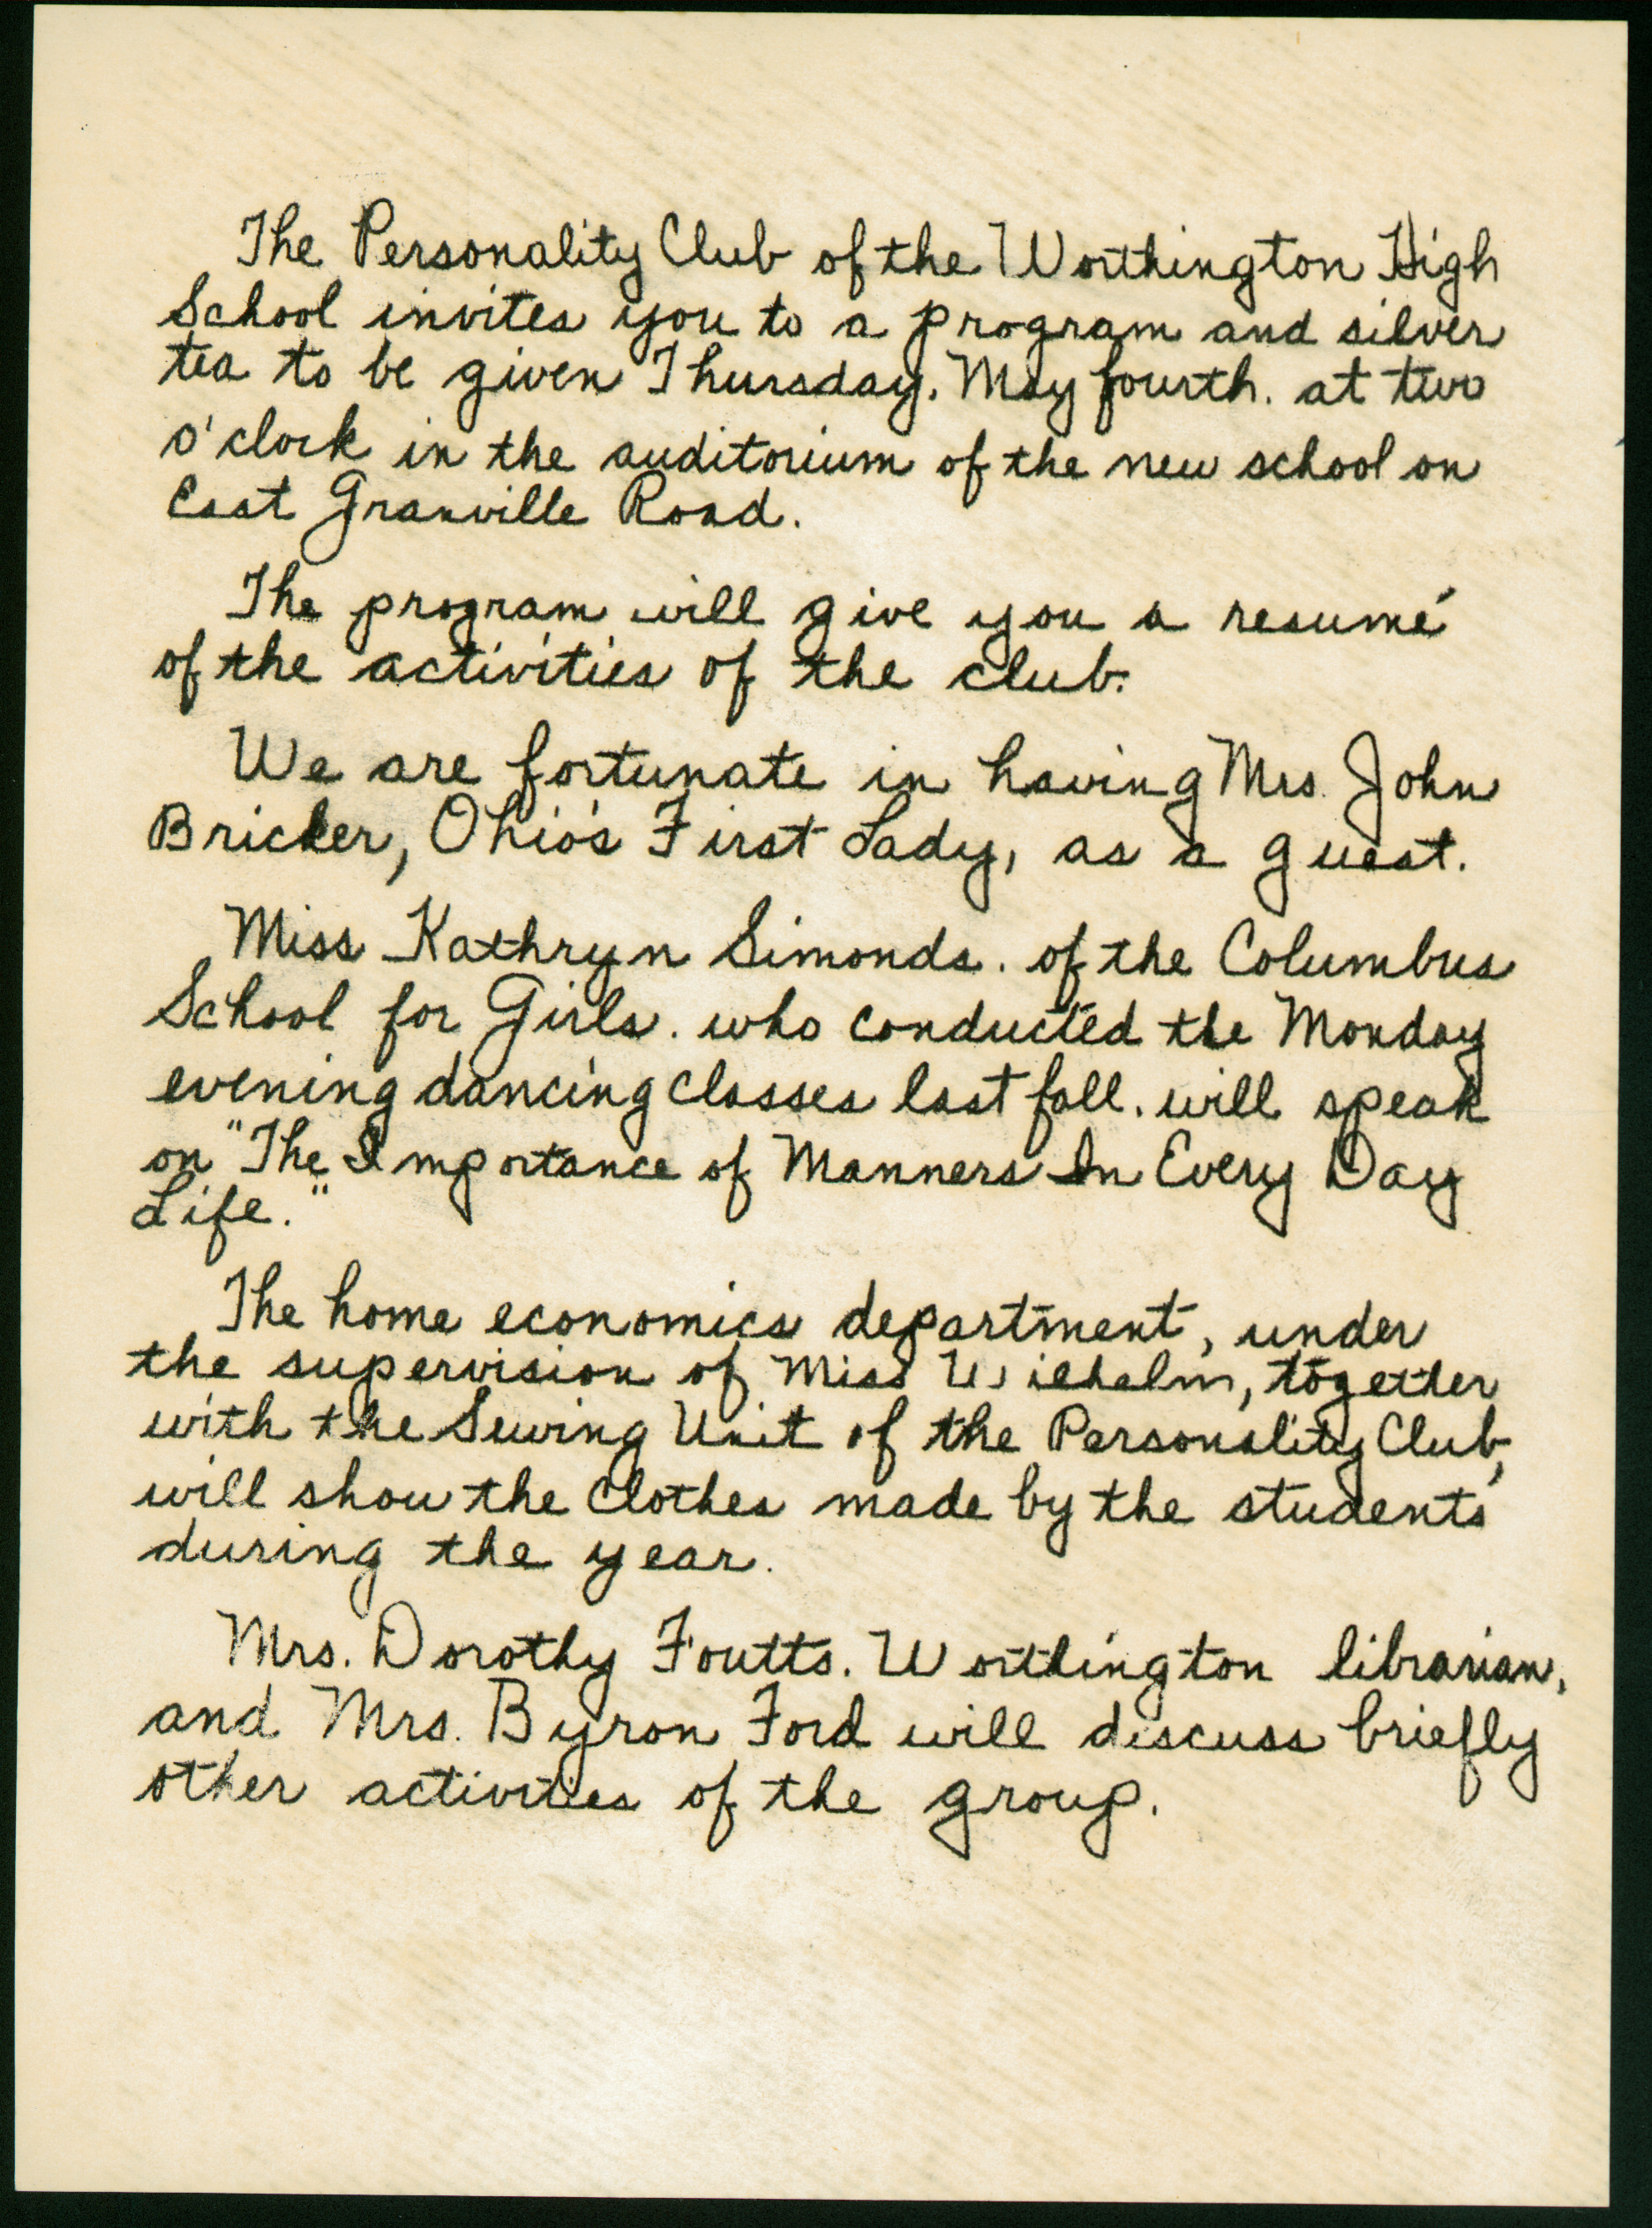 The Personality Club of the Worthington High
School invites you to a program and silver
tea to be given Thursday, May fourth, at two
o'clock in the auditorium of the new school on
East Granville Road.
The program will give you a resumé
of the activities of the club.
We are fortunate in having Mrs. John
Bricker, Ohio's First Lady, as a guest.
Miss Kathryn Simonds, of the Columbus
School for Girls, who conducted the Monday
evening dancing classes last fall, will speak
on "The Importance of Manners In Every Day
Life."
The home economics department, under
the supervision of Miss Wilhelm, together
with the Sewing Unit of the Personality Club,
will show the clothes made by the students
during the year.
Mrs. Dorothy Foutts, Worthington librarian,
and Mrs. Byron Ford will discuss briefly
other activities of the group.